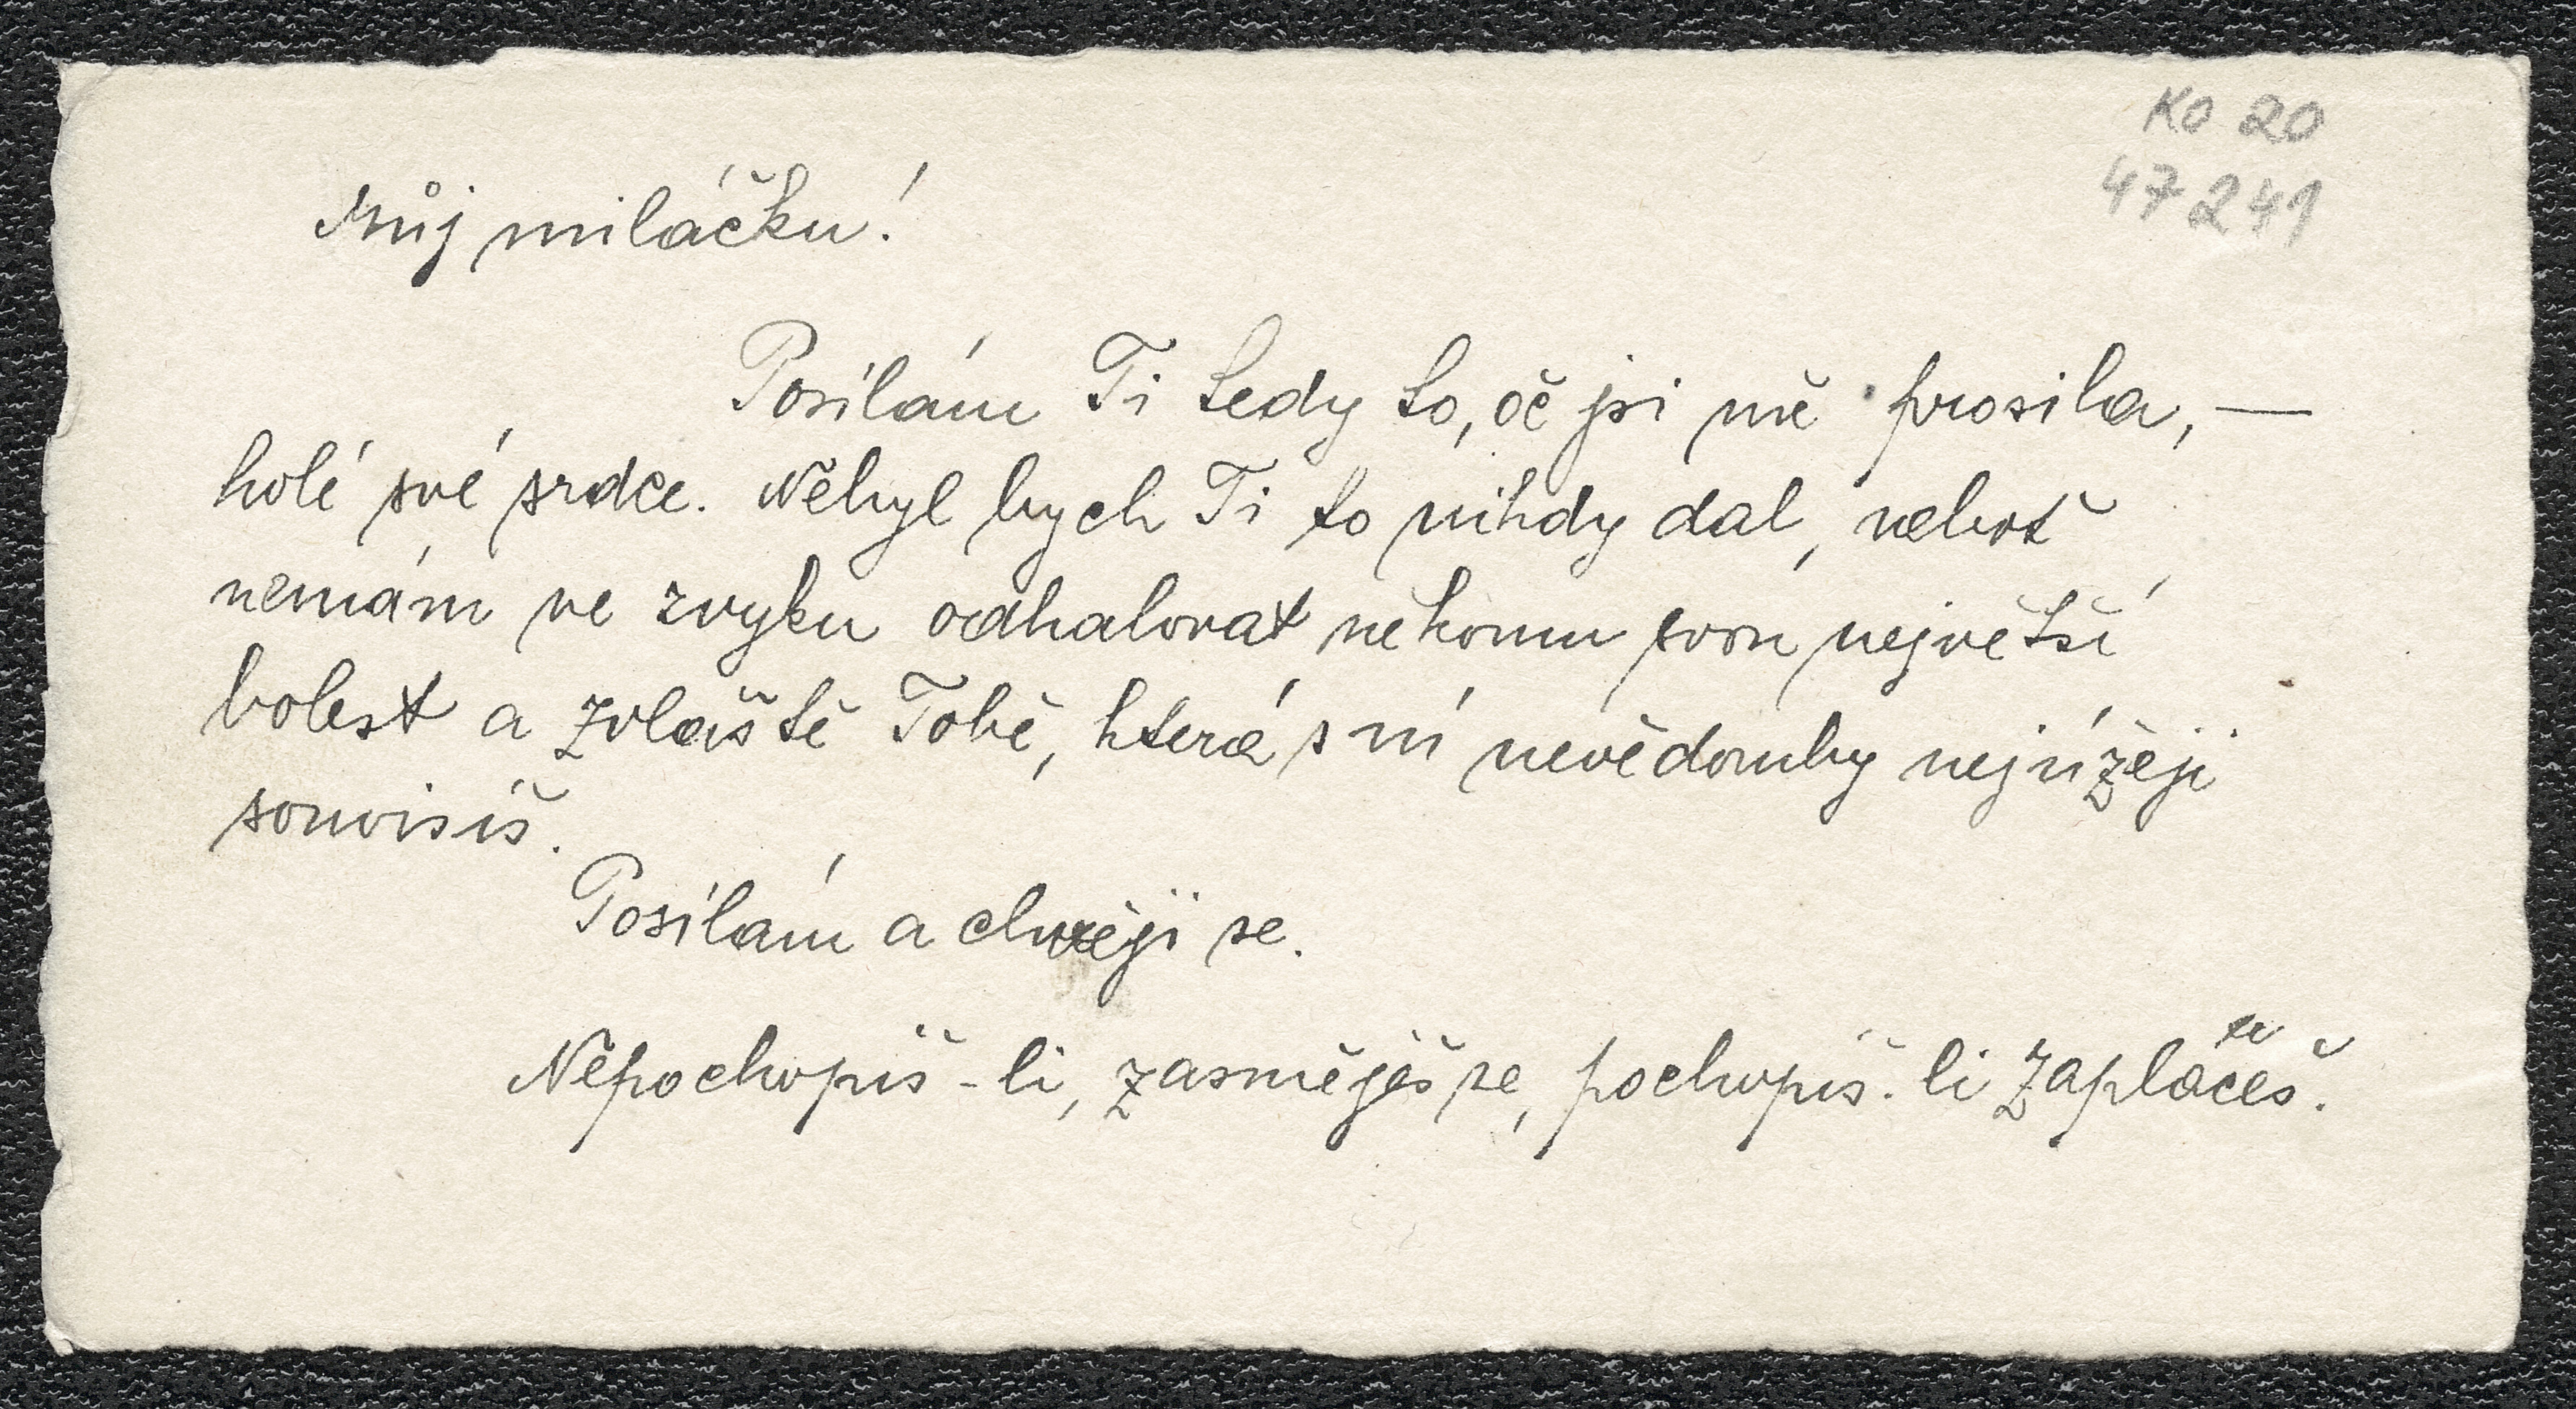 KO 20
47241
Můj miláčku!
Posílám Ti tedy to, oč jsi mě prosila, —
holé své srdce. Nebyl bych Ti to nikdy dal, neboť
nemám ve zvyku odhalovat někomu svou největší
bolest a zvláště Tobě, která s ní nevědomky nejúžeji
souvisíš.
Posílám a chvěji se.
Nepochopíš-li, zasměješ se, pochopíš-li zapláčeš.